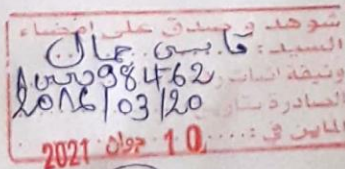 شوهد و صدق على إمضاء
السيد: قا بسي جمال
وثيقة إثبات 98462
الصادرة بتاريخ 2016/03/20
الماين في: 10 جوان 2021